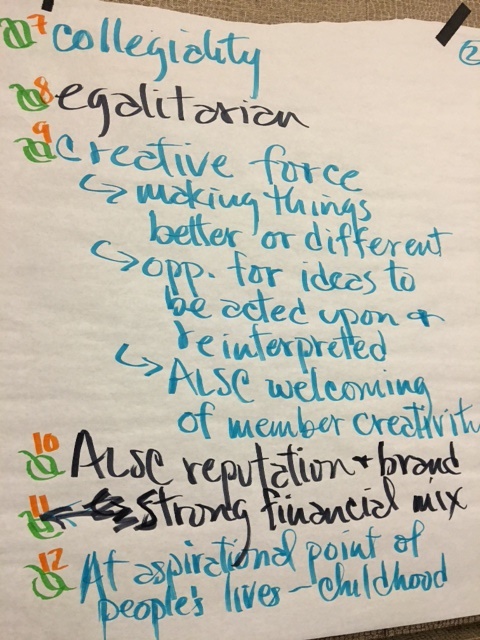 7 collegiality
②
8 egalitarian
9 creative force
↳ making things
better or different
↳ opp. for ideas to
be acted upon +
reinterpreted
↳ ALSC welcoming
of member creativity
10 ALSC reputation + brand
11 Strong financial mix
12 At aspirational point of
people's lives - childhood